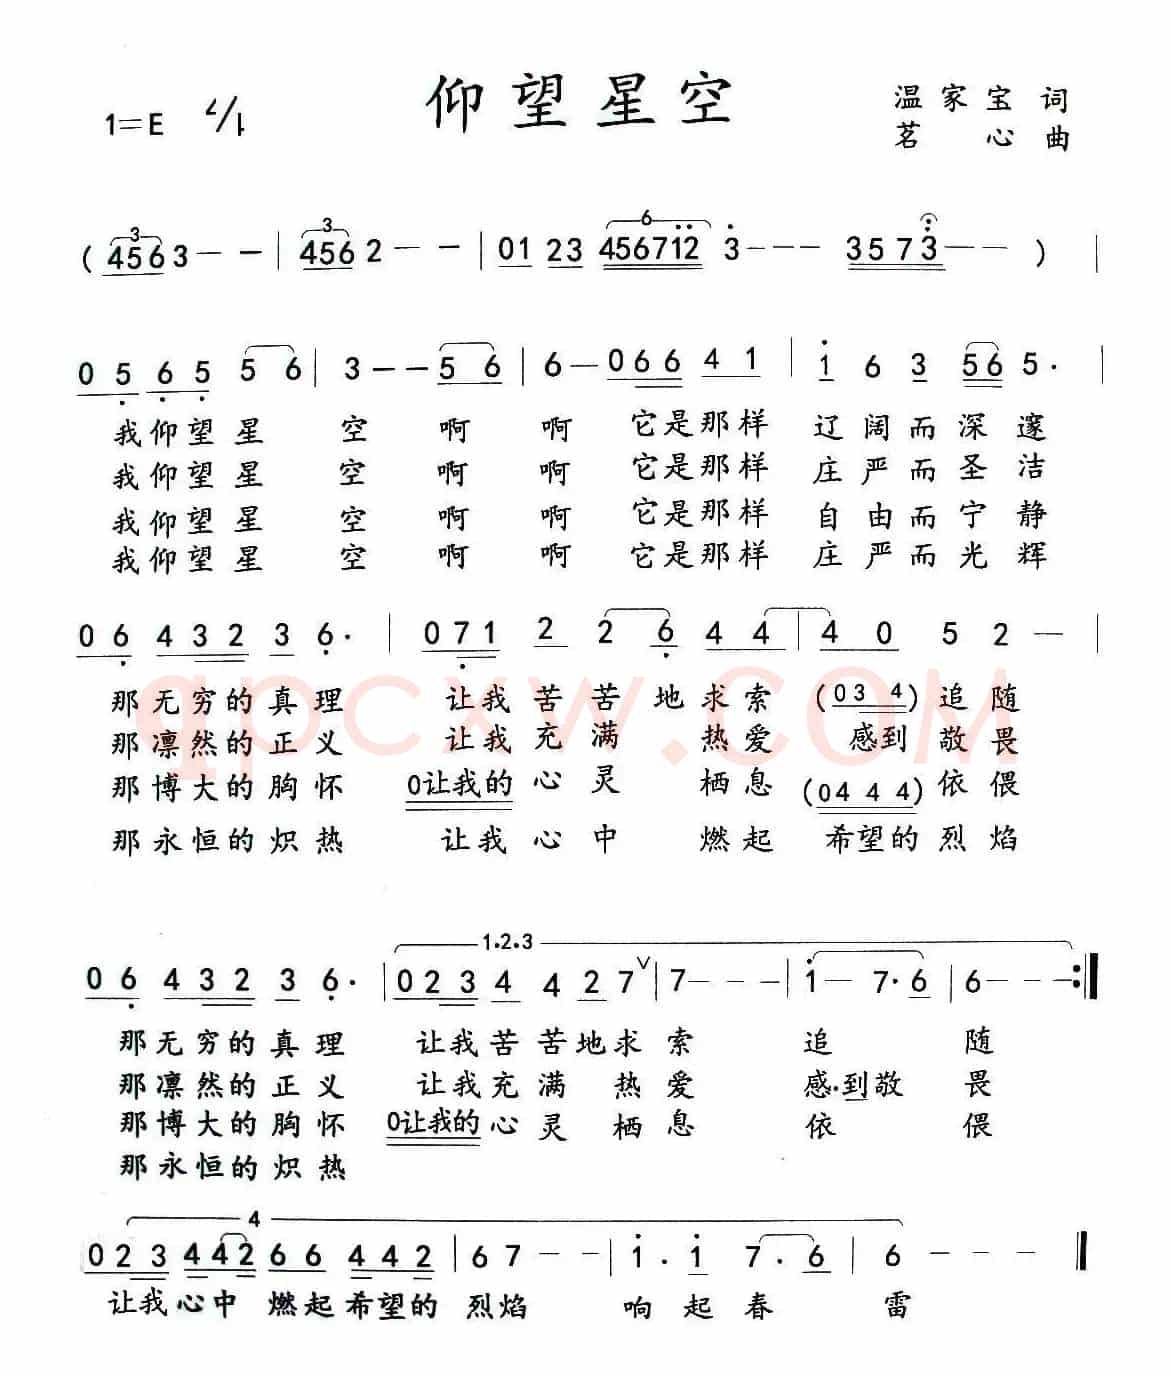 仰望星空
1=E 4/4
温家宝 词
茗心 曲
( 456 3 - - | 456 2 - - | 01 23 456712 3 - - - 3573 - - ) |
0 5 6 5 5 6 | 3 - - 5 6 | 6 - 0 6 6 4 1 | 1 6 3 5 6 5 . |
我仰望星 空 啊 啊 它是那样 辽阔而深邃
我仰望星 空 啊 啊 它是那样 庄严而圣洁
我仰望星 空 啊 啊 它是那样 自由而宁静
我仰望星 空 啊 啊 它是那样 庄严而光辉
0 6 4 3 2 3 6 . | 0 7 1 2 2 6 4 4 | 4 0 5 2 - |
那无穷的真理 让我苦苦地求索 (0 3 4) 追随
那凛然的正义 让我充满 热爱 感到敬畏
那博大的胸怀 0让我的心灵 栖息 (0 4 4 4) 依偎
那永恒的炽热 让我心中 燃起 希望的烈焰
1.2.3
0 6 4 3 2 3 6 . | 0 2 3 4 4 2 7 ∨ | 7 - - - | 1 - 7 . 6 | 6 - - - :|
那无穷的真理 让我苦苦地求索 追 随
那凛然的正义 让我充满 热爱 感到敬 畏
那博大的胸怀 0让我的心灵 栖息 依 偎
那永恒的炽热
4
0 2 3 4 4 2 6 6 4 4 2 | 6 7 - - | 1 . 1 7 . 6 | 6 - - - ‖
让我心中 燃起希望的 烈焰 响起春 雷
qpcxw.COM